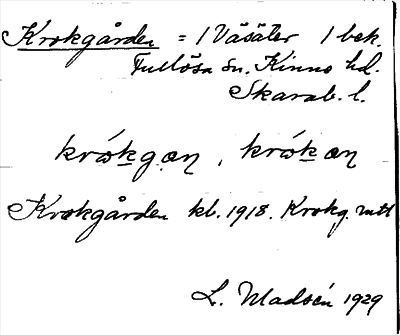 Krokgården = 1 Väsäter 1 bek.
Fullösa sn. Kinne hd.
Skarab. l.
krókgæn, krókæn
Krokgården kb. 1918. Krokg. mtl
L. Madsén 1929